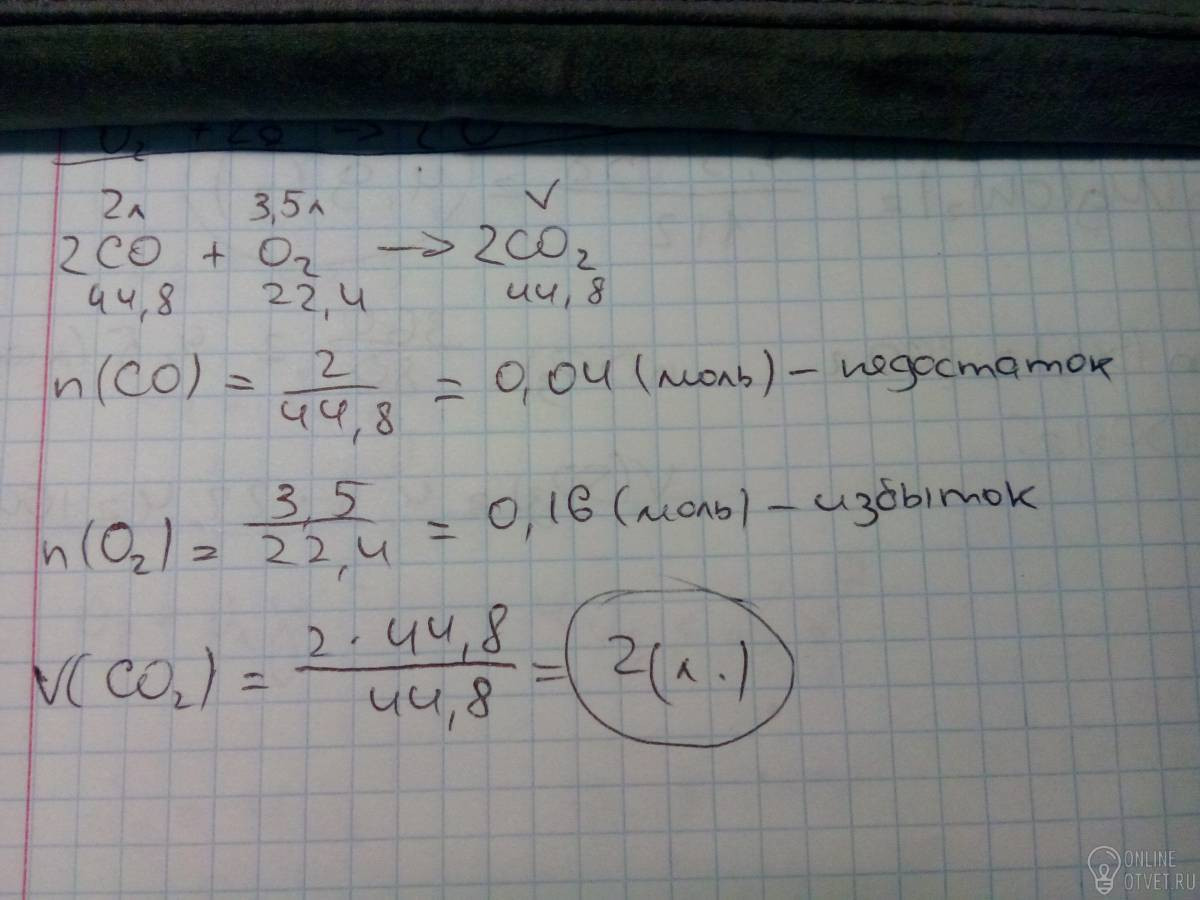 2л 3,5л V
2CO + O₂ → 2CO₂
44,8 22,4 44,8
n(CO) = 2/44,8 = 0,04 (моль) – недостаток
n(O₂) = 3,5/22,4 = 0,16 (моль) – избыток
V(CO₂) = 2·44,8/44,8 = 2(л.)
ONLINE
OTVET.RU